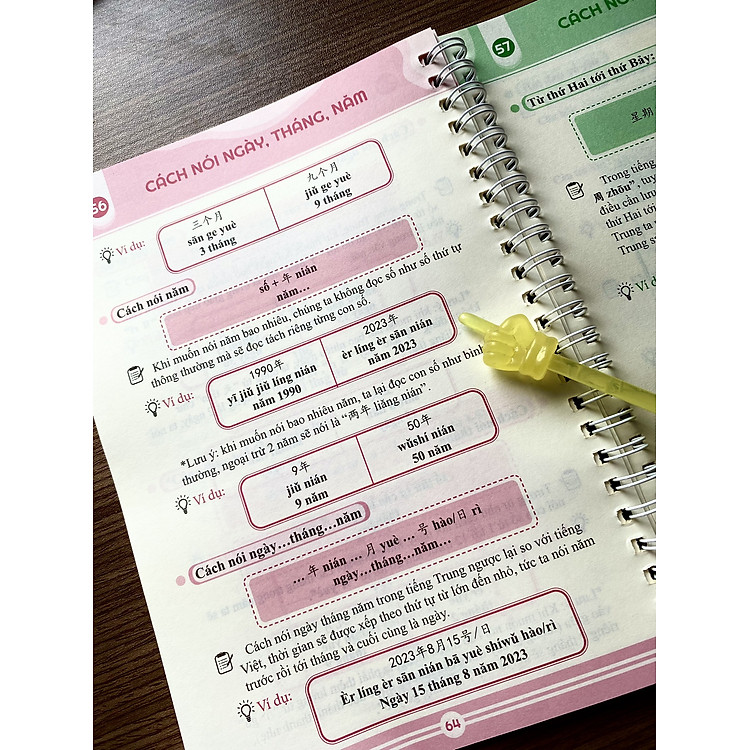 56
CÁCH NÓI NGÀY, THÁNG, NĂM
Ví dụ:
三个月
sān ge yuè
3 tháng
九个月
jiǔ ge yuè
9 tháng
Cách nói năm
số + 年 nián
năm…
Khi muốn nói năm bao nhiêu, chúng ta không đọc số như số thứ tự
thông thường mà sẽ đọc tách riêng từng con số.
Ví dụ:
1990年
yī jiǔ jiǔ líng nián
năm 1990
2023年
èr líng èr sān nián
năm 2023
*Lưu ý: khi muốn nói bao nhiêu năm, ta lại đọc con số như bình
thường, ngoại trừ 2 năm sẽ nói là “两年 liǎng nián”.
Ví dụ:
9年
jiǔ nián
9 năm
50年
wǔshí nián
50 năm
Cách nói ngày…tháng…năm
… 年 nián … 月 yuè … 号 hào/日 rì
ngày…tháng…năm…
Cách nói ngày tháng năm trong tiếng Trung ngược lại so với tiếng
Việt, thời gian sẽ được xếp theo thứ tự từ lớn đến nhỏ, tức ta nói năm
trước rồi tới tháng và cuối cùng là ngày.
Ví dụ:
2023年8月15号/日
Èr líng èr sān nián bā yuè shíwǔ hào/rì
Ngày 15 tháng 8 năm 2023
64
57
CÁCH NÓ
Từ thứ Hai tới thứ Bảy:
星期
Trong tiếng
周 zhōu”, tuy
điều cần lưu
thứ Hai tới
Trung ta
Trung s
Ví d